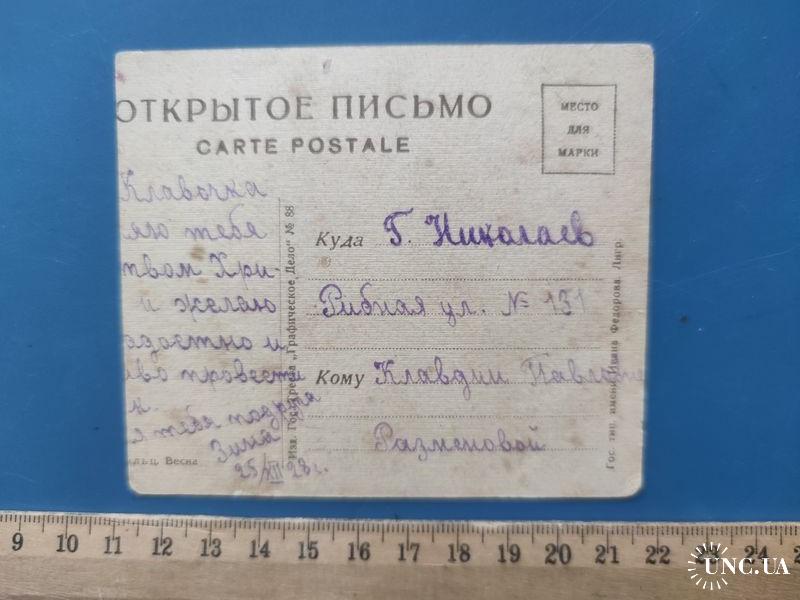 ОТКРЫТОЕ ПИСЬМО
CARTE POSTALE
МЕСТО
ДЛЯ
МАРКИ
Клавочка
яю тебя
твом Хри-
и желаю
адостно и
иво провести
к.
я тебя подруга
Зина
25/XII 28 г.
льц. Весна
Изд. Госпресса „Графическое Дело" № 88
Куда Г. Николаев
Рибная ул. № 131
Кому Клавдии
Разменовой
Гос. тип. имени Ивана Федорова. Лнгр.
9 10 11 12 13 14 15 16 17 18 19 20 21 22 24
UNC.UA